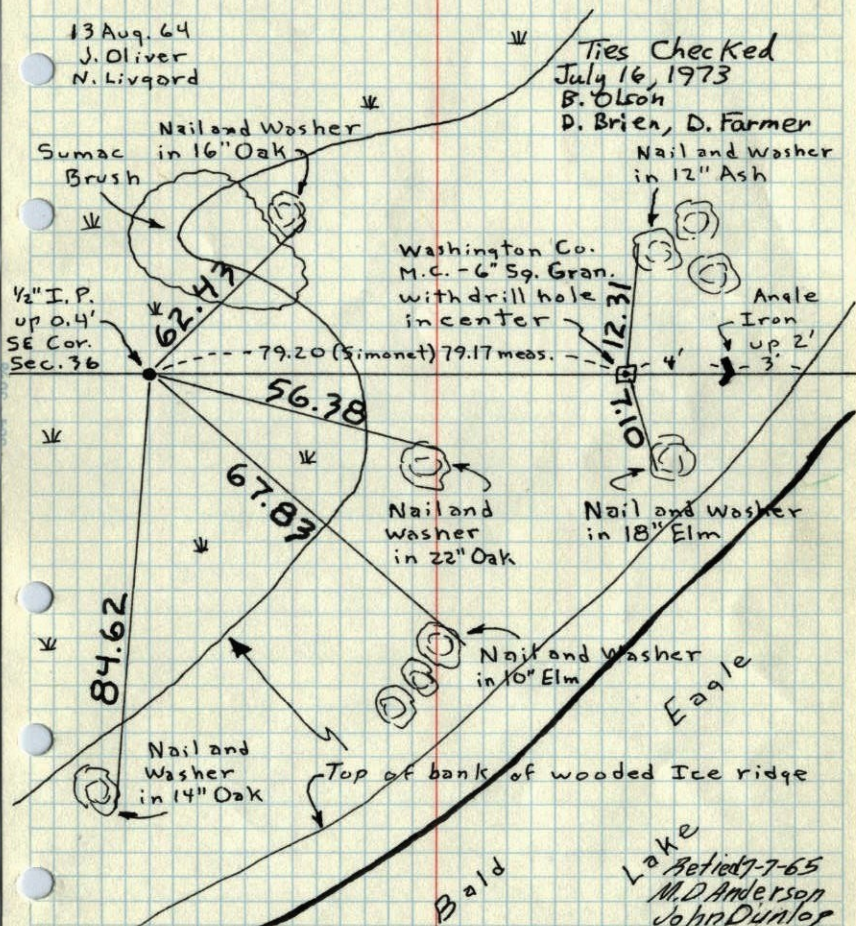 13 Aug. 64
J. Oliver
N. Livgard
Ties Checked
July 16, 1973
B. Olson
D. Brien, D. Farmer
Nail and Washer
in 16" Oak
Sumac
Brush
Nail and Washer
in 12" Ash
Washington Co.
M.C. - 6" Sq. Gran.
with drill hole
in center
½" I.P.
up 0.4'
SE Cor.
Sec. 36
62.43
12.31
Angle
Iron
up 2'
79.20 (Simonet) 79.17 meas.
4'
3'
56.38
7.10
67.83
Nail and
Washer
in 22" Oak
Nail and Washer
in 18" Elm
84.62
Nail and Washer
in 10" Elm
Nail and
Washer
in 14" Oak
Top of bank of wooded Ice ridge
Bald Eagle Lake
Retied 7-7-65
M.D Anderson
John Dunlop